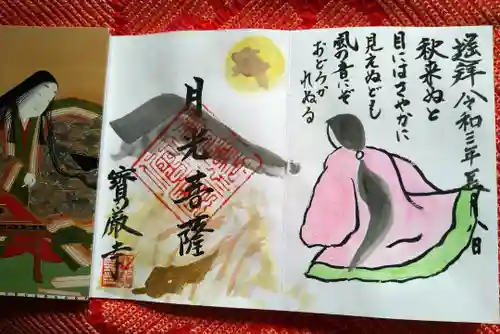 奉拝 令和三年五月八日
秋来ぬと
目にはさやかに
見えぬども
風の音にぞ
おどろか
れぬる
月光菩薩
寶厳寺